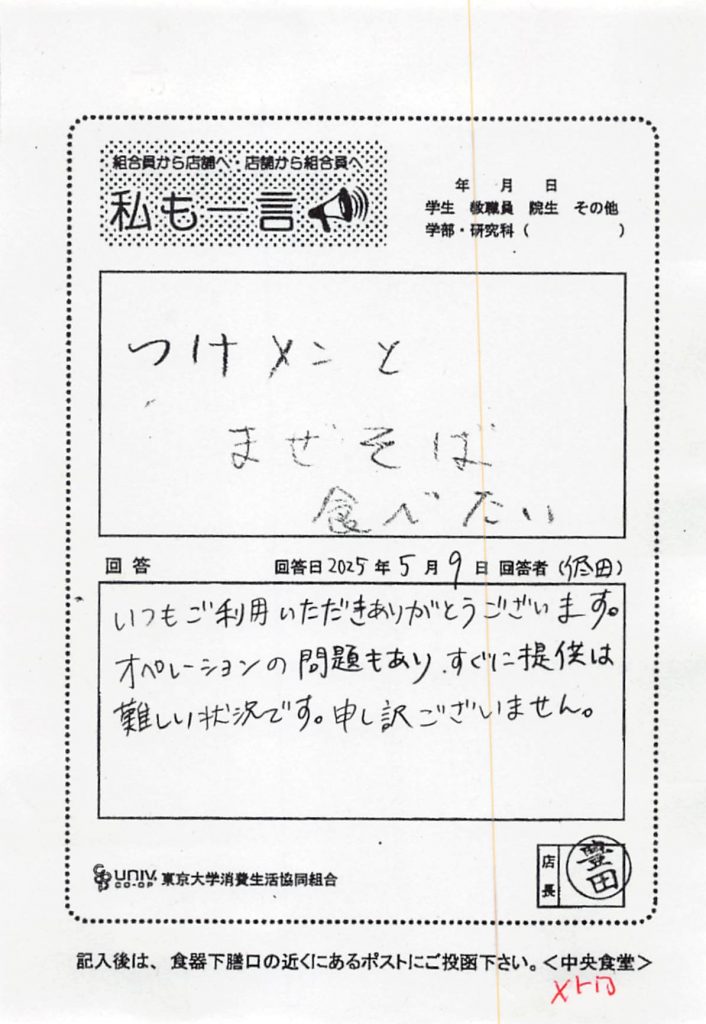 組合員から店舗へ 店舗から組合員へ
私も一言
年 月 日
学生 教職員 院生 その他
学部・研究科( )
つけメンと
まぜそば
食べたい
回答 回答日2025年5月9日 回答者( 田)
いつもご利用いただきありがとうございます。
オペレーションの問題もあり、すぐに提供は
難しい状況です。申し訳ございません。
UNIV. CO-OP 東京大学消費生活協同組合
店長 豊田
記入後は、食器下膳口の近くにあるポストにご投函下さい。<中央食堂>